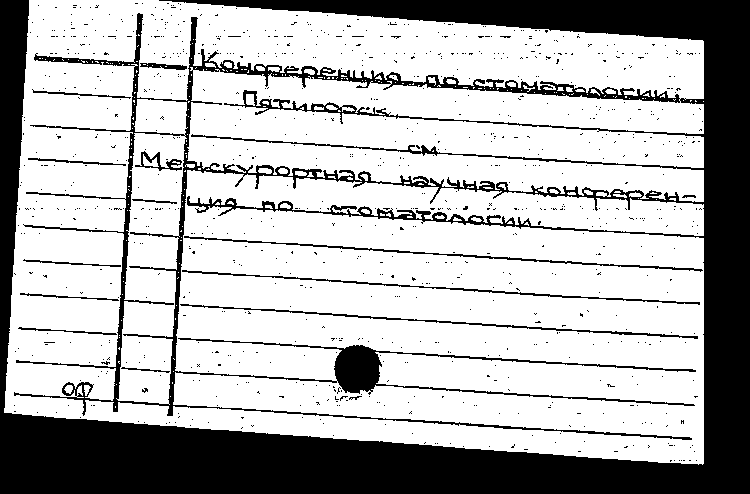 Конференция по стоматологии;
Пятигорск.
см
Межкурортная научная конферен-
ция по стоматологии.
ОФ